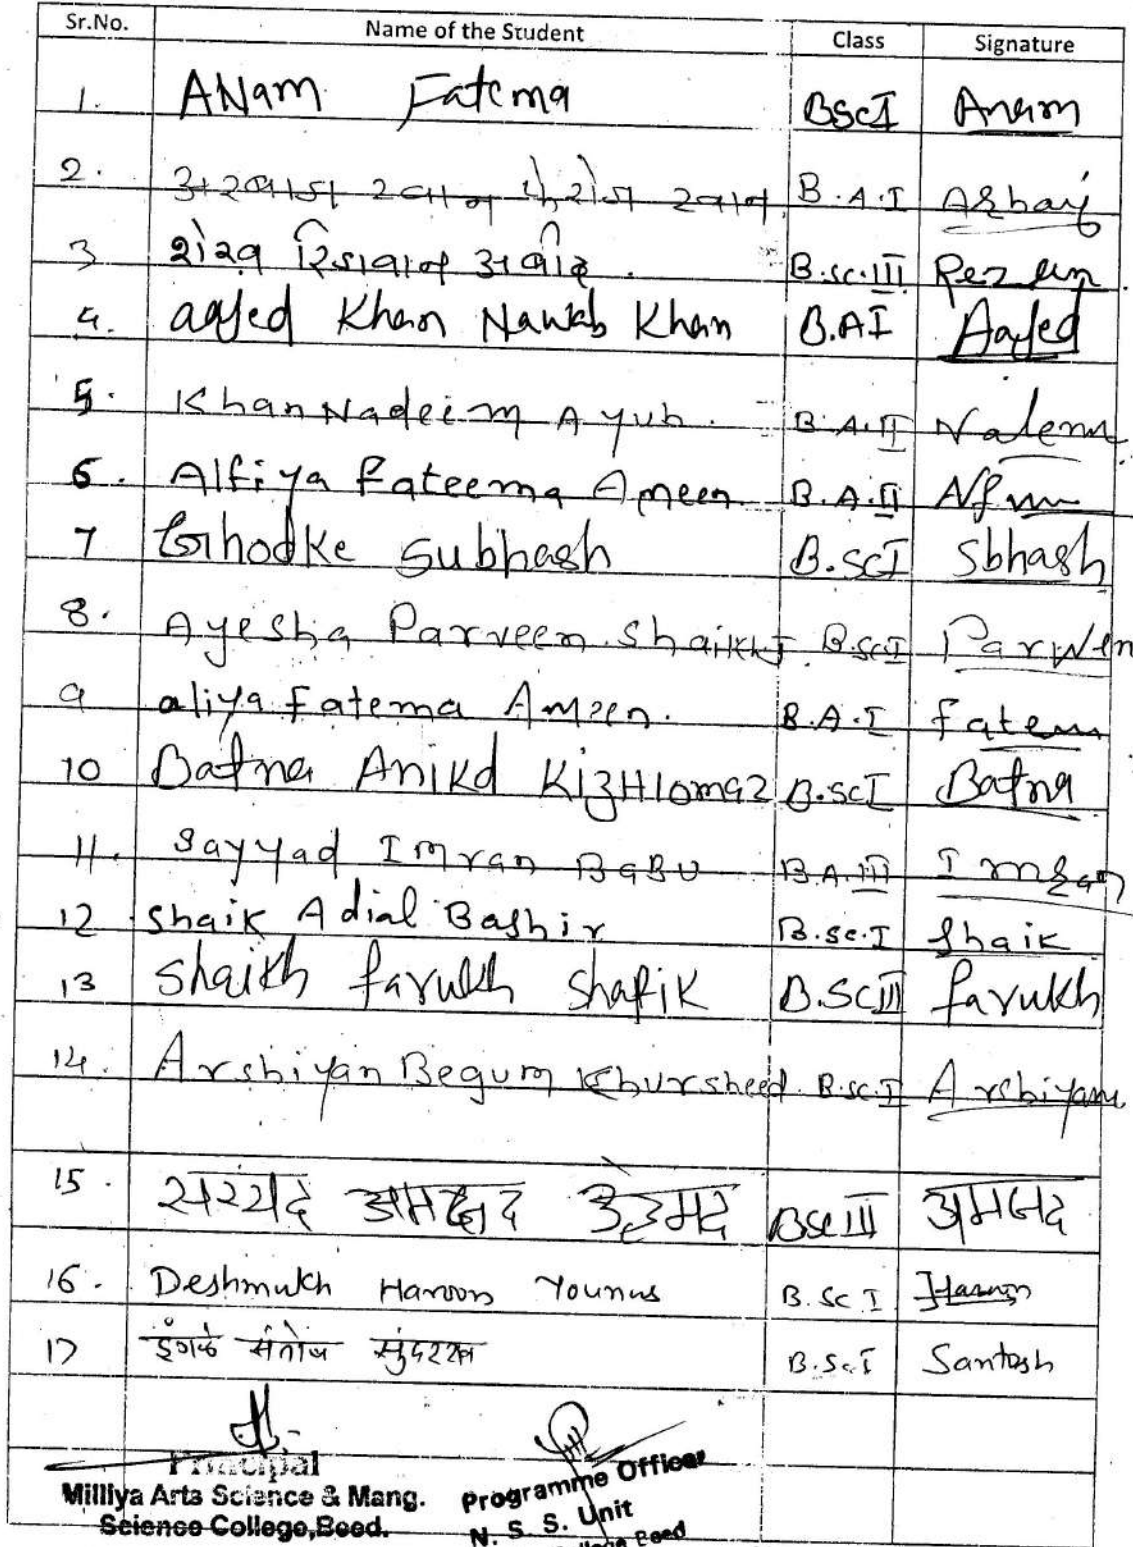 Sr.No. Name of the Student Class Signature
1. ANam Fatema BSc I Anam
2. खान खान B.A.I
3 शेख रिजवान B.sc.III Rezwan
4. aajed Khan Nawab Khan B.A I Aajed
5. Khan Nadeim Ayub. B.A.II Nadeem
6. Alfiya Fateema Ameen B.A.II
7 Ghodke Subhash B.Sc I Sbhash
8. Ayesha Parveen Shaikh B.sc.I Parwen
9 aliya Fatema Ameen. B.A.I Fatem
10 Batna B.Sc I Batna
11. Sayyad Imran BaBU B.A.III Imran
12 Shaik Adial Bashir B.sc.I Shaik
13 Shaikh farukh Shafik B.Sc III farukh
14. Arshiyan Begum Khursheed B.sc.I Arshiyan
15. सय्यद अमजद अहेमद BSc III अमजद
16. Deshmukh Haroon Younus B.Sc I Haroon
17 इंगळे संतोष सुंदरराव B.Sc.I Santosh
Principal
Milliya Arts Science & Mang.
Science College,Beed.
Programme Officer
N. S. S. Unit
College Beed